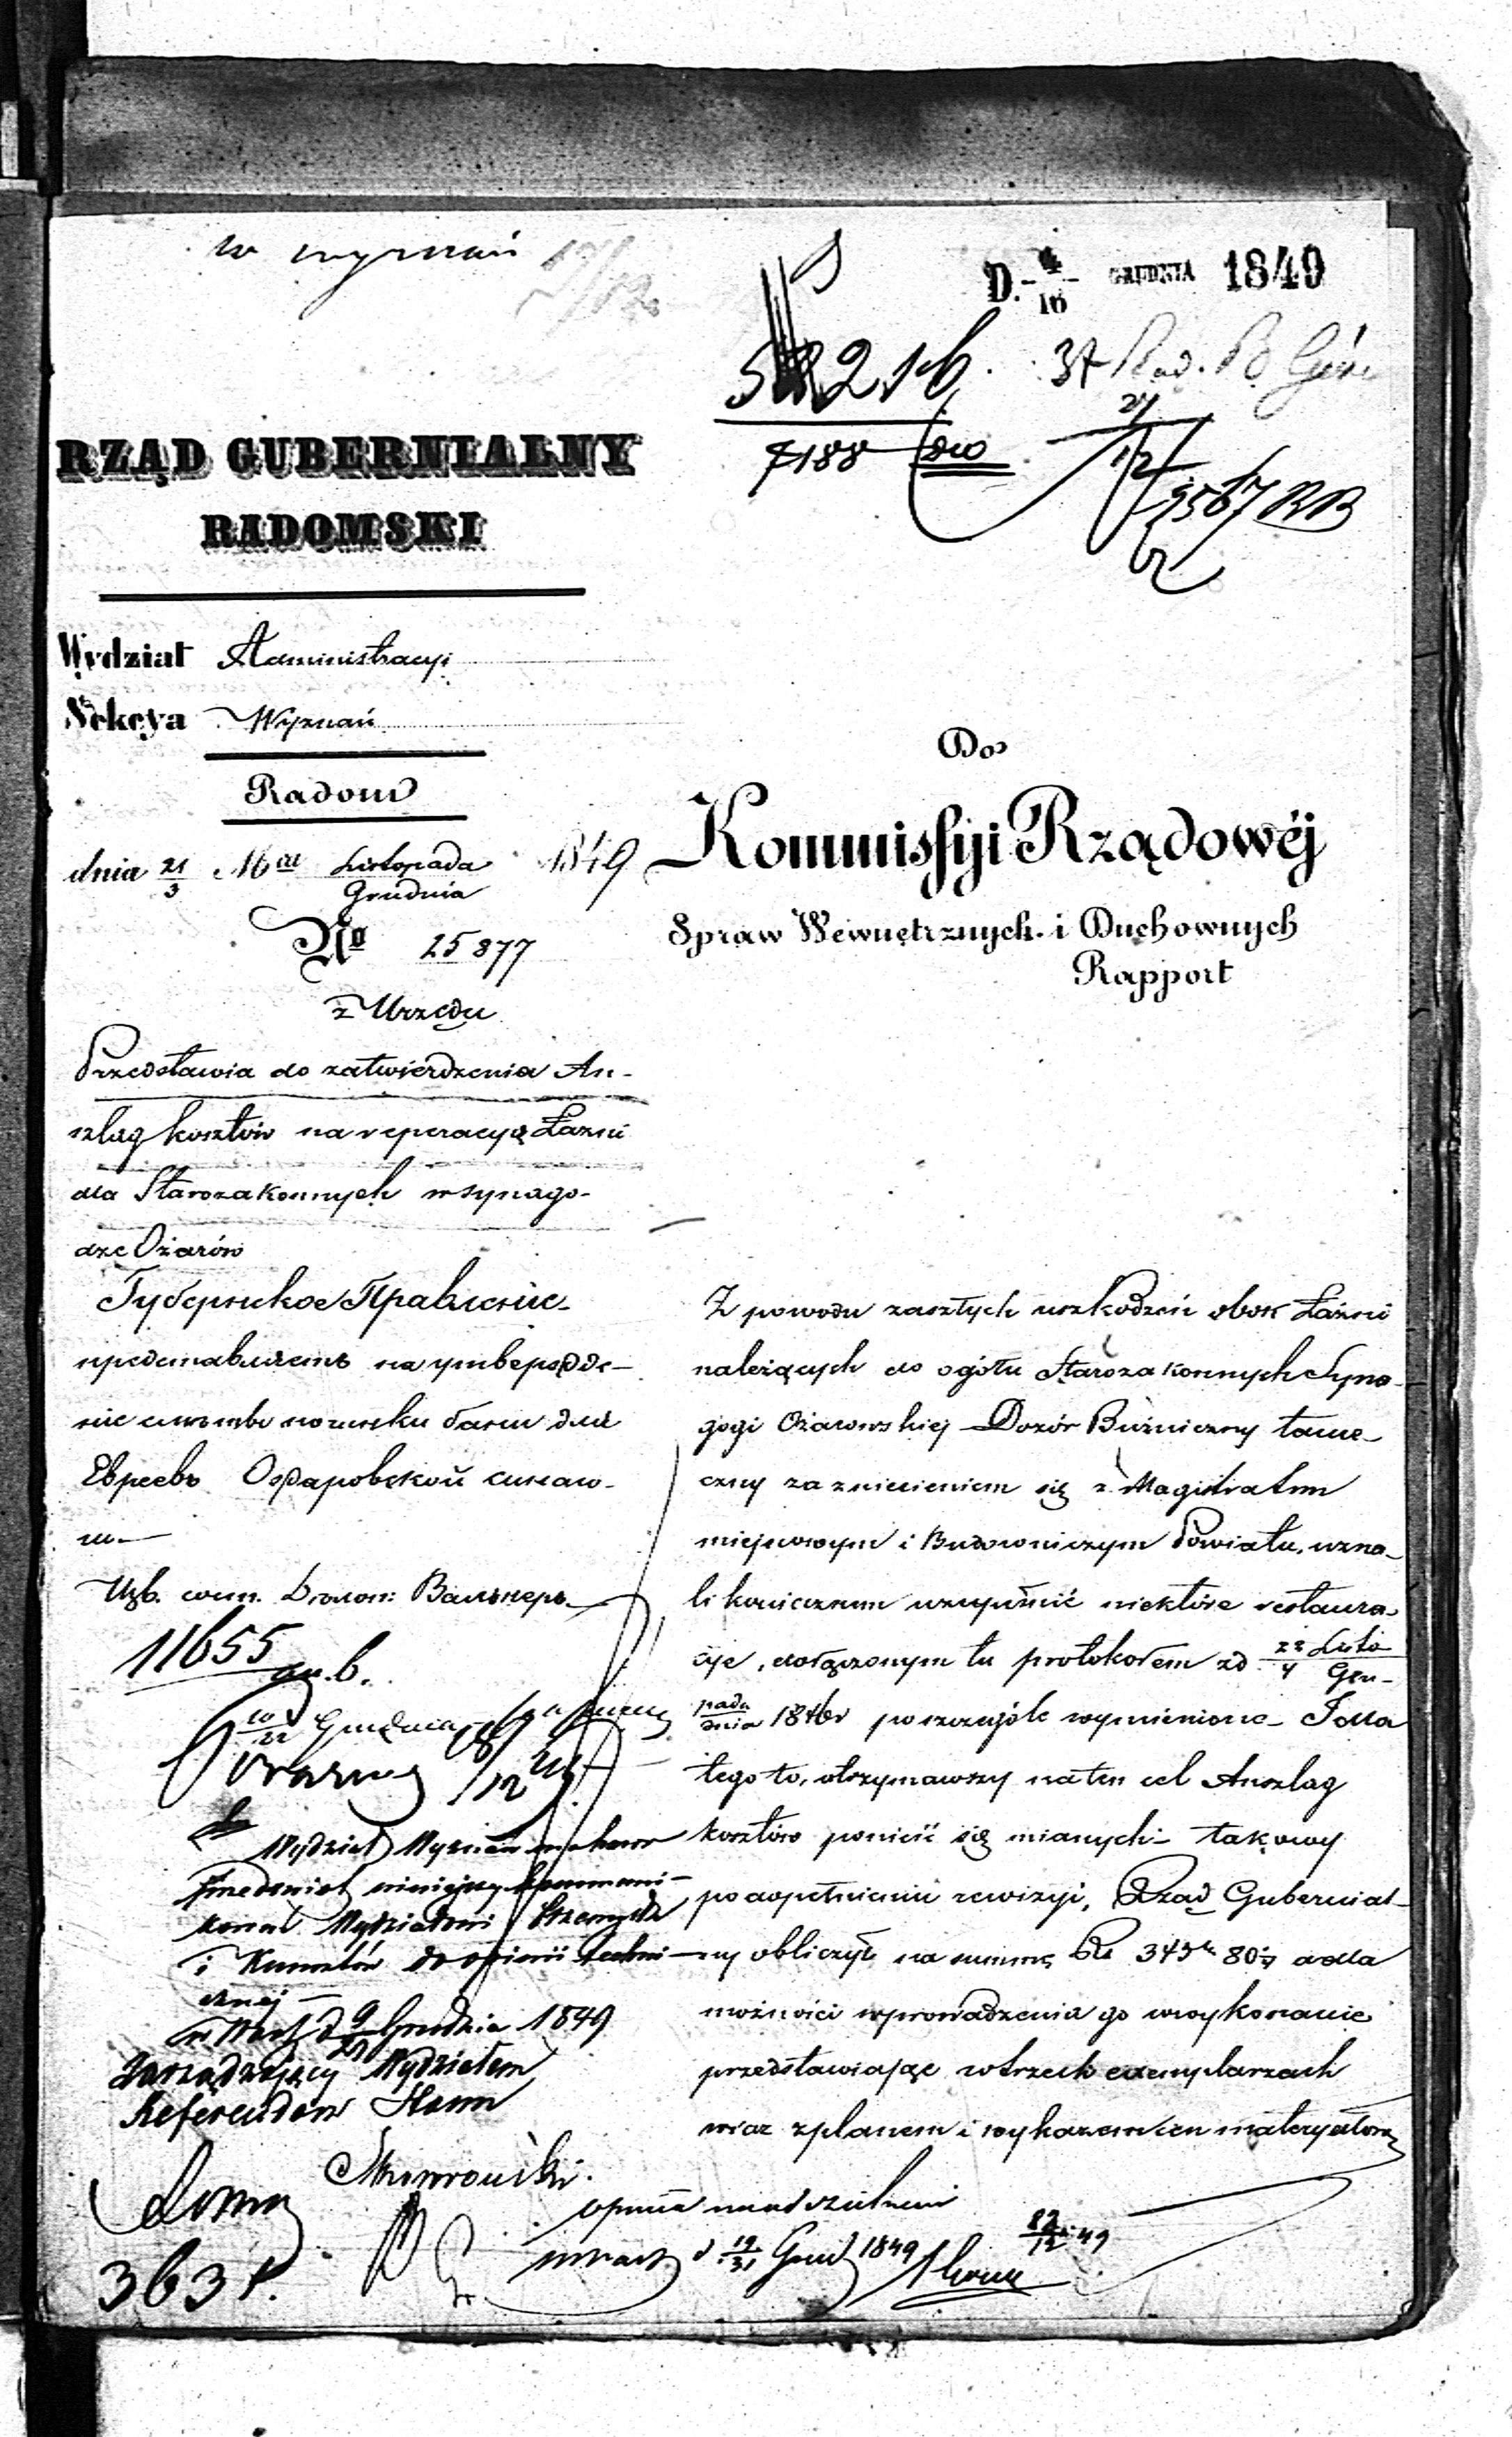 w wyznań
D. 4/16 GRUDNIA 1849
37 Rad. B.
7188
27/12
9567 RB
RZĄD GUBERNIALNY
RADOMSKI
Wydział Administracyi
Sekcya Wyznań
Radom
dnia 21/3 Mca Listopada/Grudnia 1849
No 25877
z Urzędu
Przedstawia do zatwierdzenia An-
szlag kosztów na reperacyą Łazni
dla Starozakonnych w synago-
dze Ożarów
Губернское Правление
представляетъ на утвержде-
ние смѣты починки бани для
Евреевъ Ожаровской синаго-
ги
11655
10/22 Grudnia
Wydział Wyznań ma honor
przedmiot niniejszy kommuni-
kować Wydziałowi Przemysłu
i Kunsztów do opinii techni-
cznej
w Warsz d 9/21 Grudnia 1849
Zarządzający Wydziałem
Referendarz Stanu
3631.
Do
Kommissyi Rządowéj
Spraw Wewnętrznych i Duchownych
Rapport
Z powodu zaszłych uszkodzeń obok Łaźni
należących do ogółu Starozakonnych Syna-
gogi Ożarowskiej Dozór Bóżniczny tame-
czny za zniesieniem się z Magistratem
miejscowym i Budowniczym Powiatu, uzna-
li koniecznem uzupełnić niektóre restaura-
cye, dołączonym tu protokołem zd 22/4 Listo/Gru-
pada/dnia 1848r poszczególe wymienione Idla
tego to, otrzymawszy na ten cel Anszlag
kosztów ponieść się mianych takowy
po dopełnieniu rewizyi, Rząd Gubernial-
ny obliczył na summę Rs 345 k 80 a dla
możności wprowadzenia go w wykonanie
przedstawiając w trzech exemplarzach
wraz z planem i wykazem cen materyałów
opinia w
w Warsz d 19/31 Grud 1849